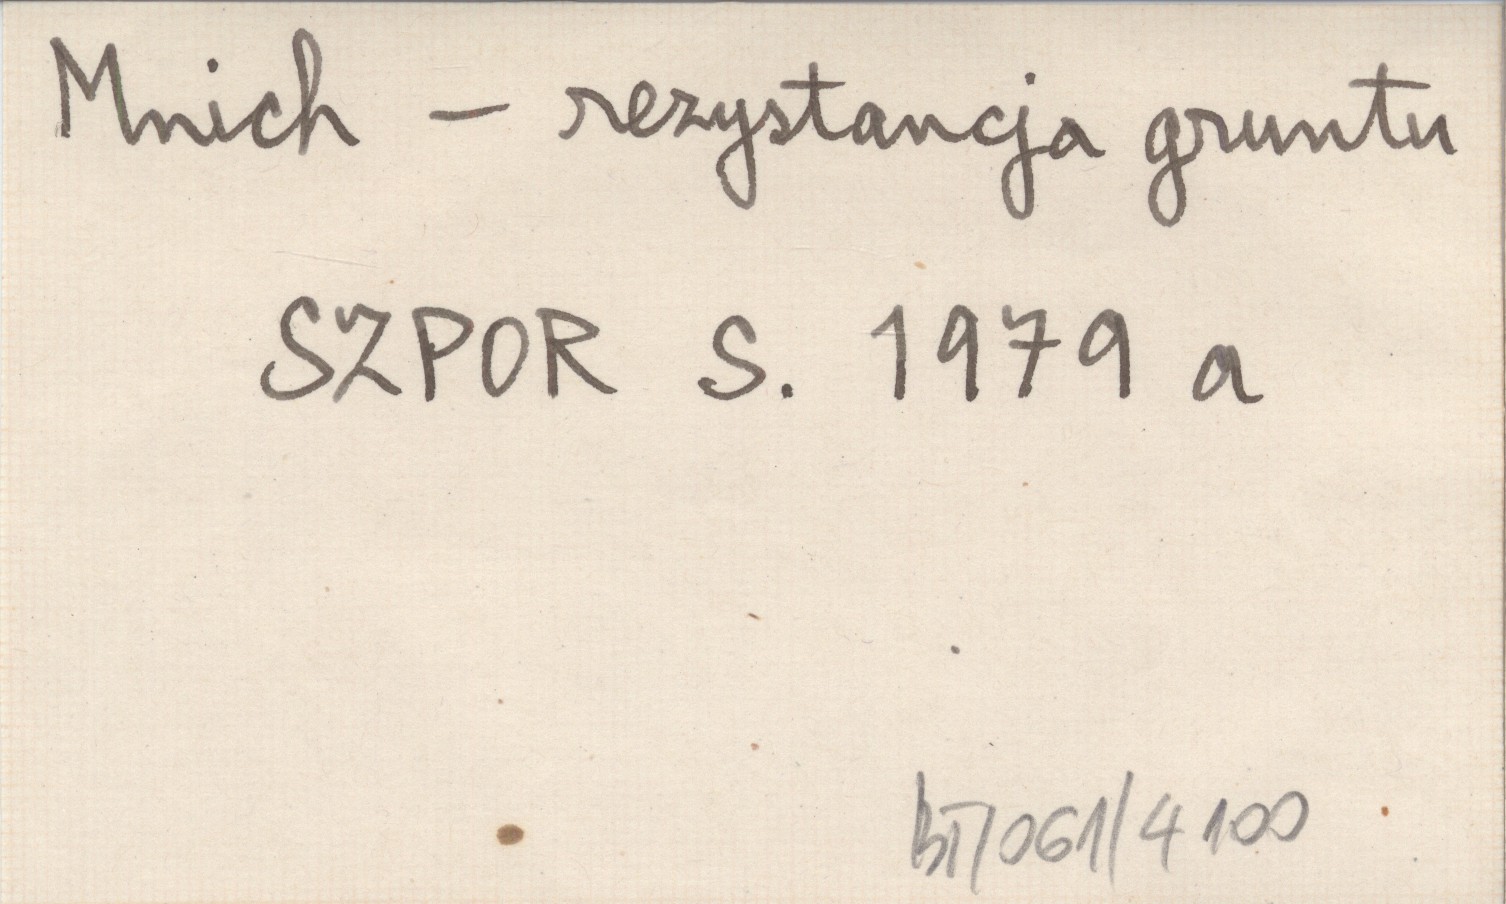 Mnich - rezystancja gruntu
SZPOR S. 1979 a
BT/061/4100